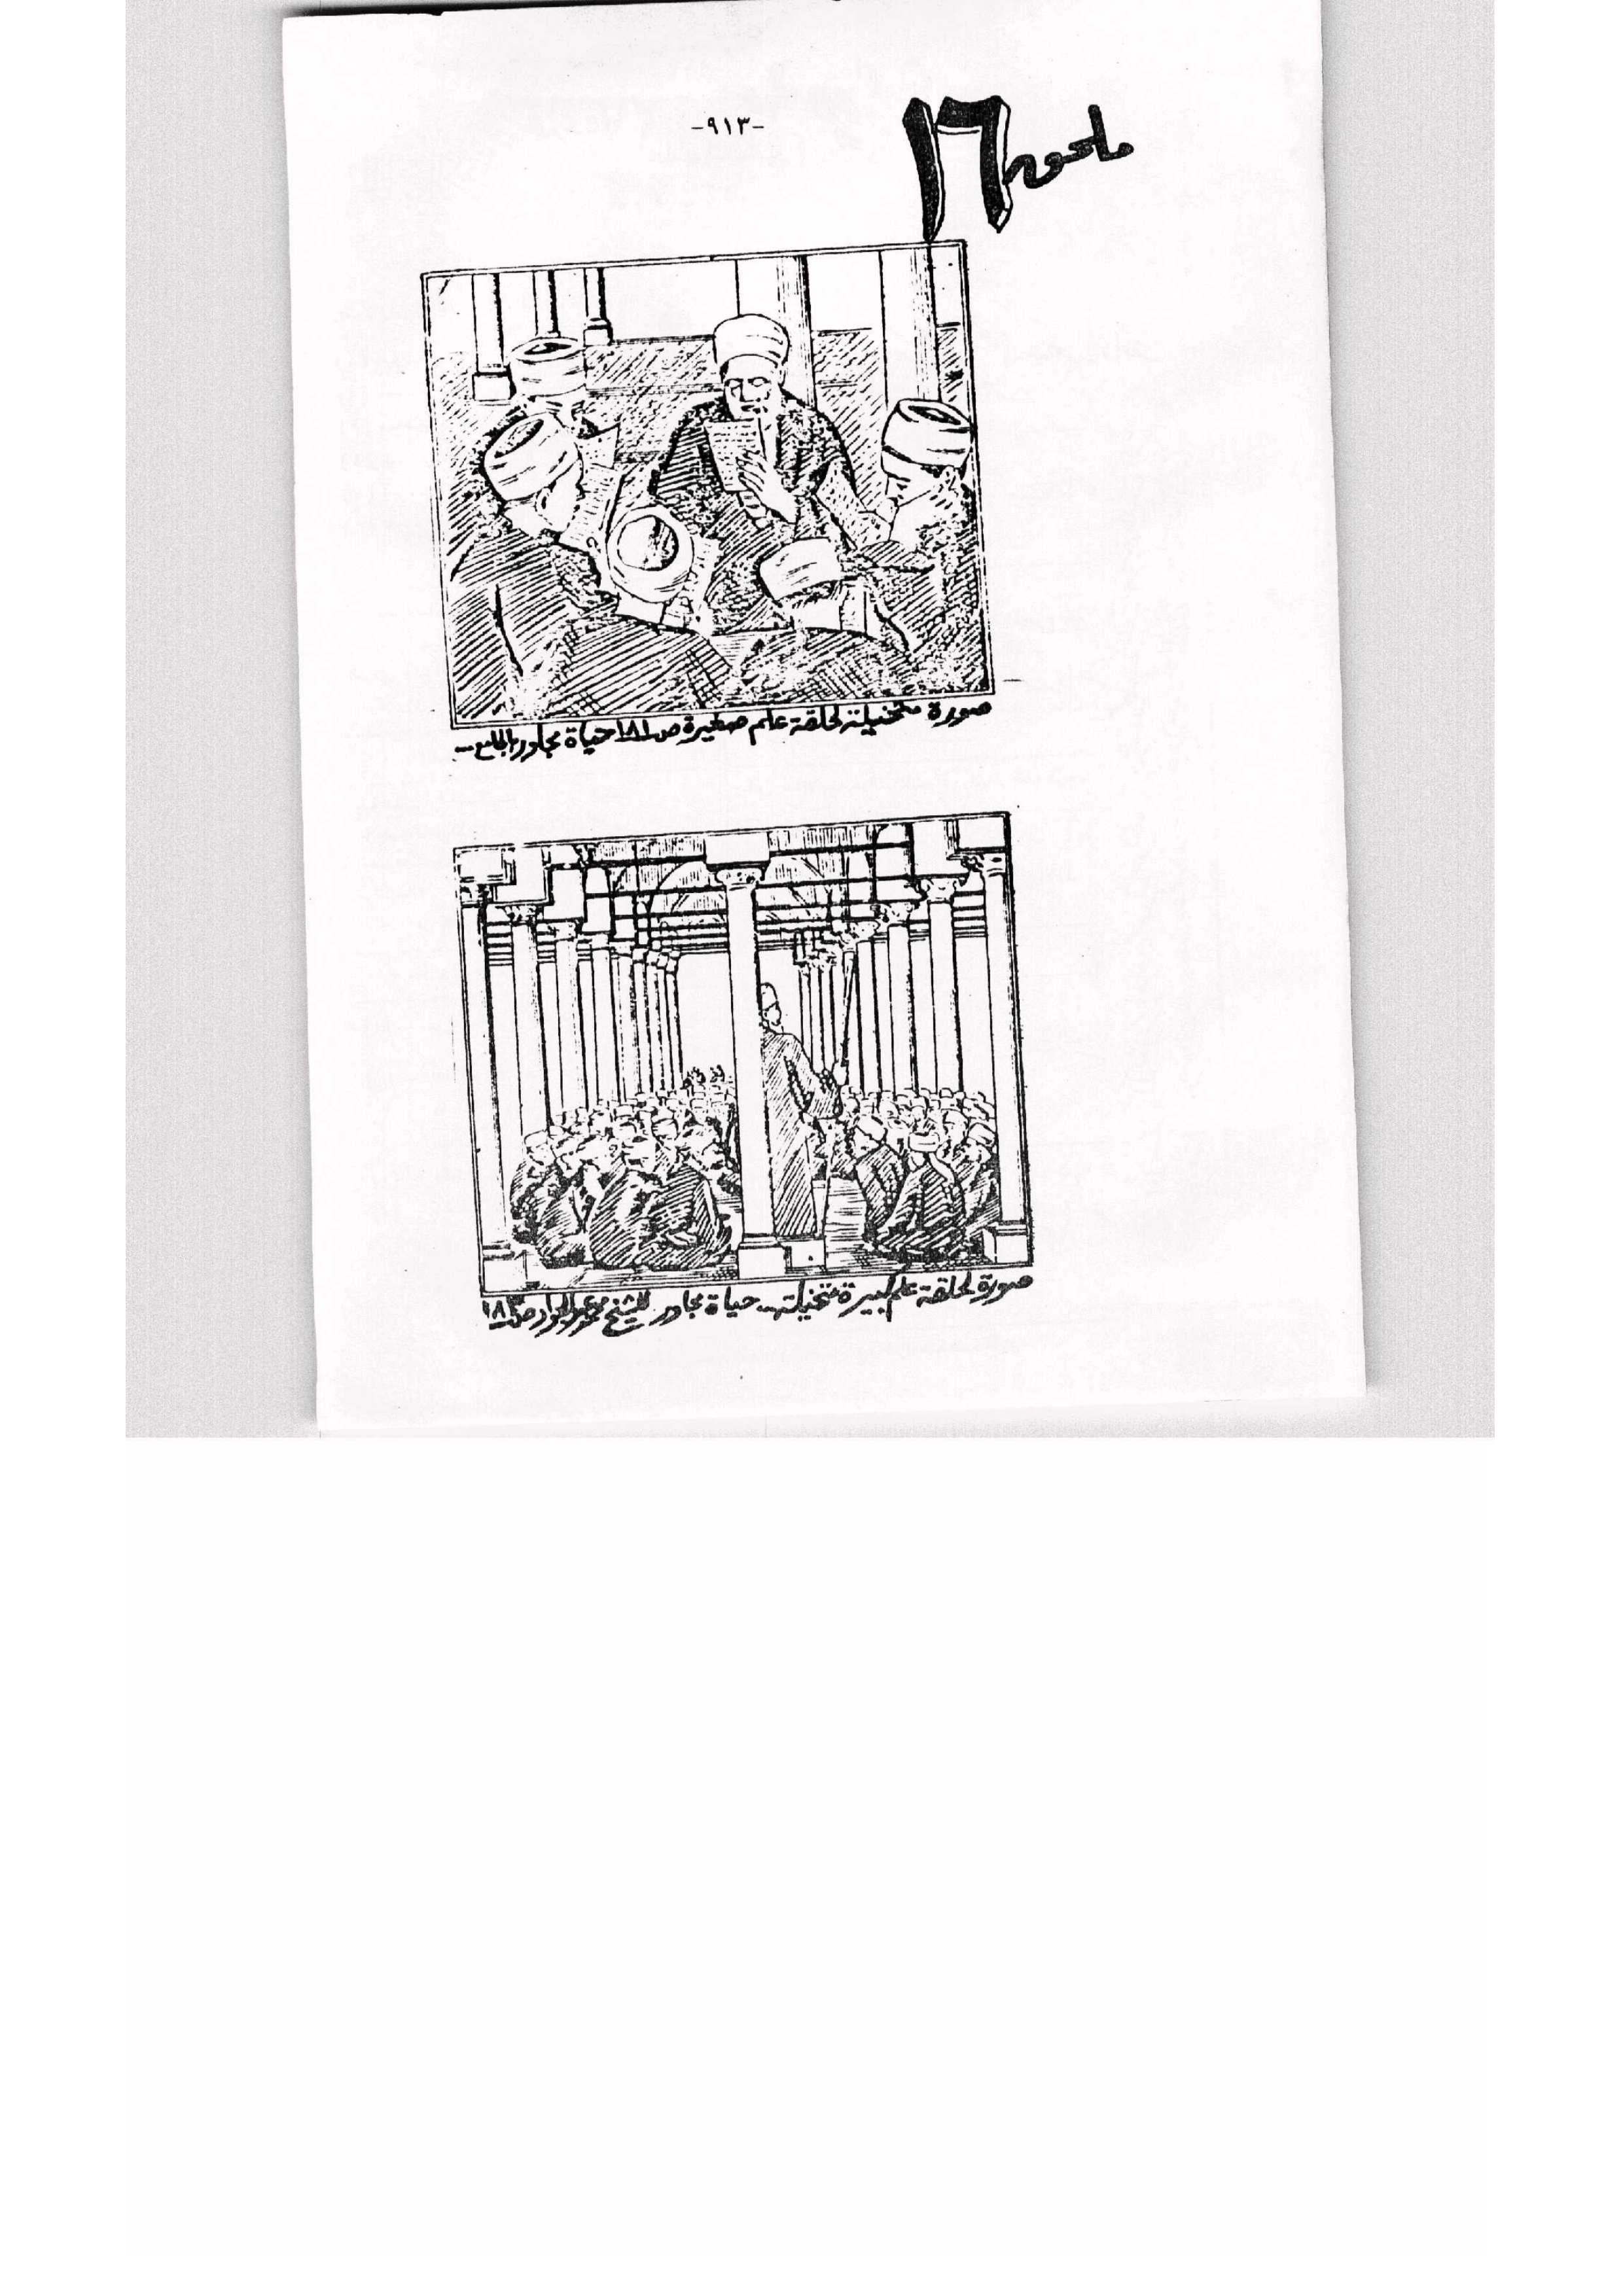 -٩١٣-
ملحق ١٦
صورة متخيلة لحلقة علم صغيرة ص١٨١ حياة مجاور بالجامع --
صورة لحلقة علم كبيرة متخيلة -- حياة مجاور للشيخ محمد عبدالجواد ص